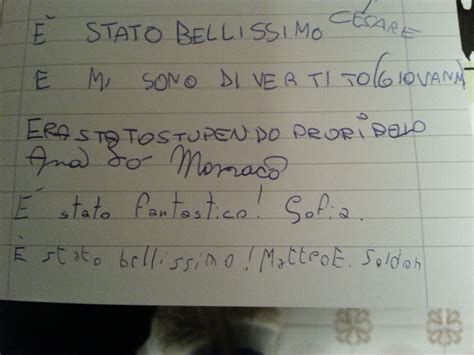 È STATO BELLISSIMO CESARE
E MI SONO DIVERTITO (GIOVANNI)
ERA STATO STUPENDO
È stato fantastico! Sofia.
È stato bellissimo! Matteo E. Soldan